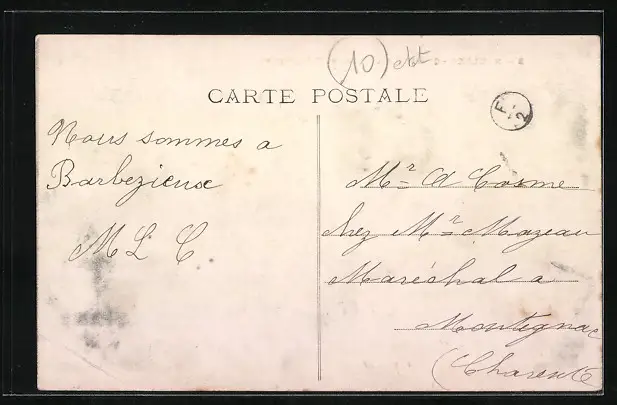 10
CARTE POSTALE
F
2
Nous sommes a
Barbezieux
M L C
Mr A Cosme
chez Mr Mazeau
Maréchal a
Montignac
(Charente